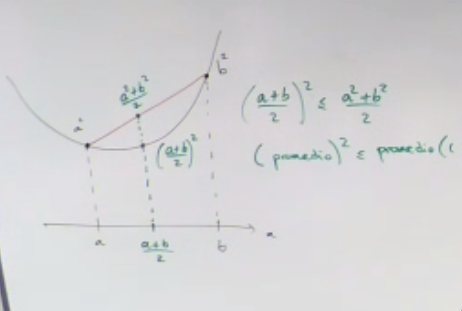 b²
a²+b²/2
a²
((a+b)/2)²
a
(a+b)/2
b
x
((a+b)/2)² ≤ (a²+b²)/2
(promedio)² ≤ promedio (